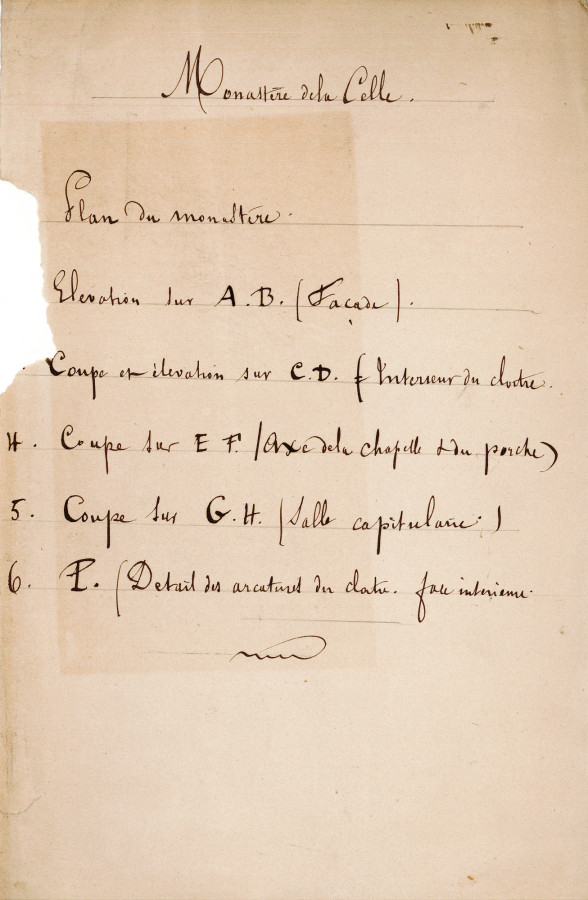 Monastère de la Celle.
Plan du monastère.
Elevation sur A.B. (Façade).
Coupe et élevation sur C.D. (Interieur du cloitre.
4. Coupe sur E F. (Axe de la chapelle & du porche)
5. Coupe sur G.H. (Salle capitulaire.)
6. P. (Détail des arcatures du cloitre. face interieure.